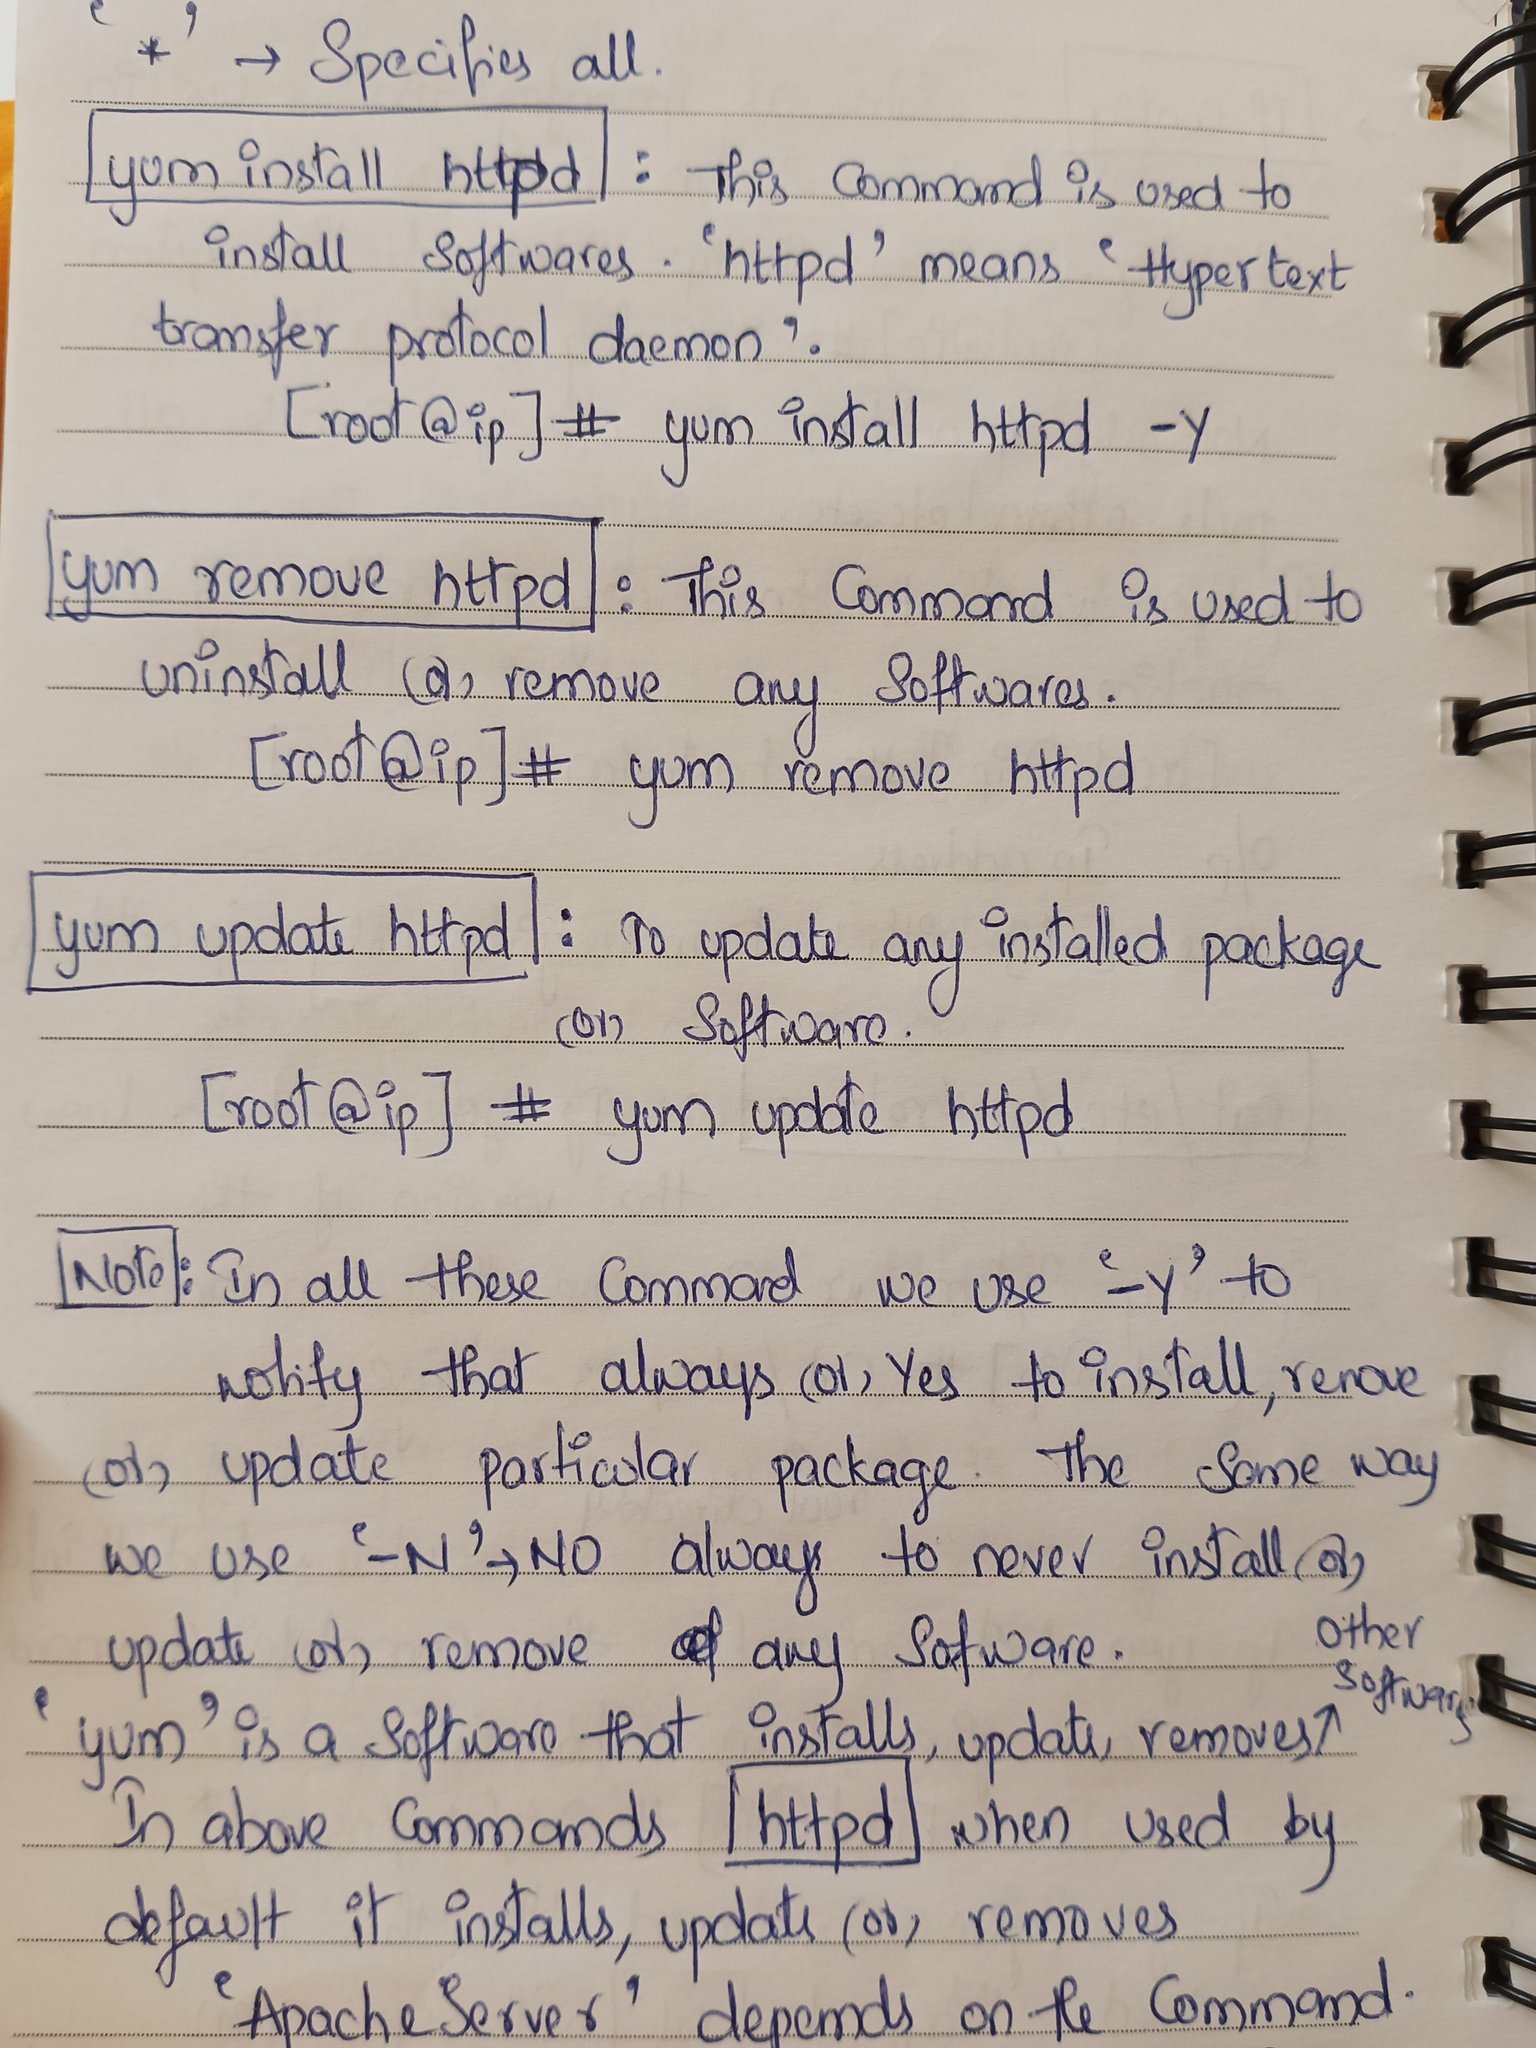 '*' → Specifies all.
yum install httpd : This Command is used to
install Softwares. 'httpd' means 'Hypertext
transfer protocol daemon'.
[root@ip]# yum install httpd -y
yum remove httpd : This Command is used to
uninstall (or) remove any Softwares.
[root@ip]# yum remove httpd
yum update httpd : To update any installed package
(or) Software.
[root@ip] # yum update httpd
Note: In all these Command we use '-y' to
notify that always (or) Yes to install, remove
(or) update particular package. The Same way
we use '-N' → NO always to never install (or)
update (or) remove of any Sofware.
'yum' is a Software that installs, update, removes ↗ other Softwares
In above Commands httpd when used by
default it installs, update (or) removes
'Apache Server' depends on the Command.